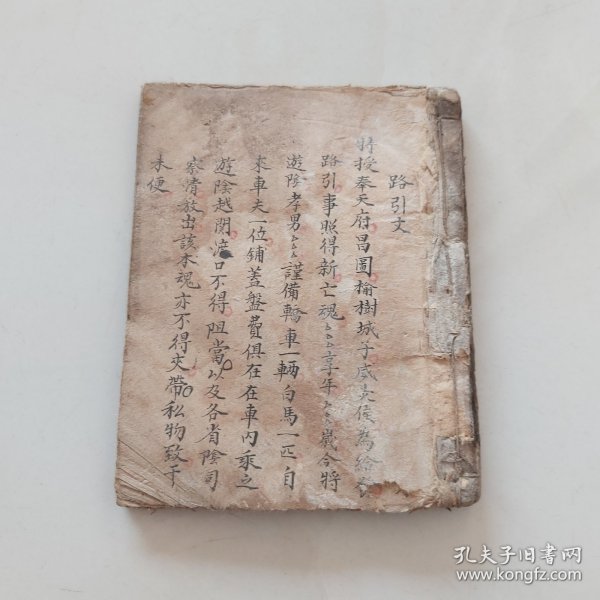 路引文
將授奉天府昌圖榆樹城子威
路引事照得新亡魂〻〻享年〻〻歲合將
遊陰孝男〻〻謹備轎車一輛白馬一匹自
來車夫一位鋪蓋盤費俱在在車內乘之
遊陰越關渡口不得阻當以及各省陰司
察情放出該本魂亦不得夾帶私物致于
未便
孔夫子旧书网
www.kongfz.com